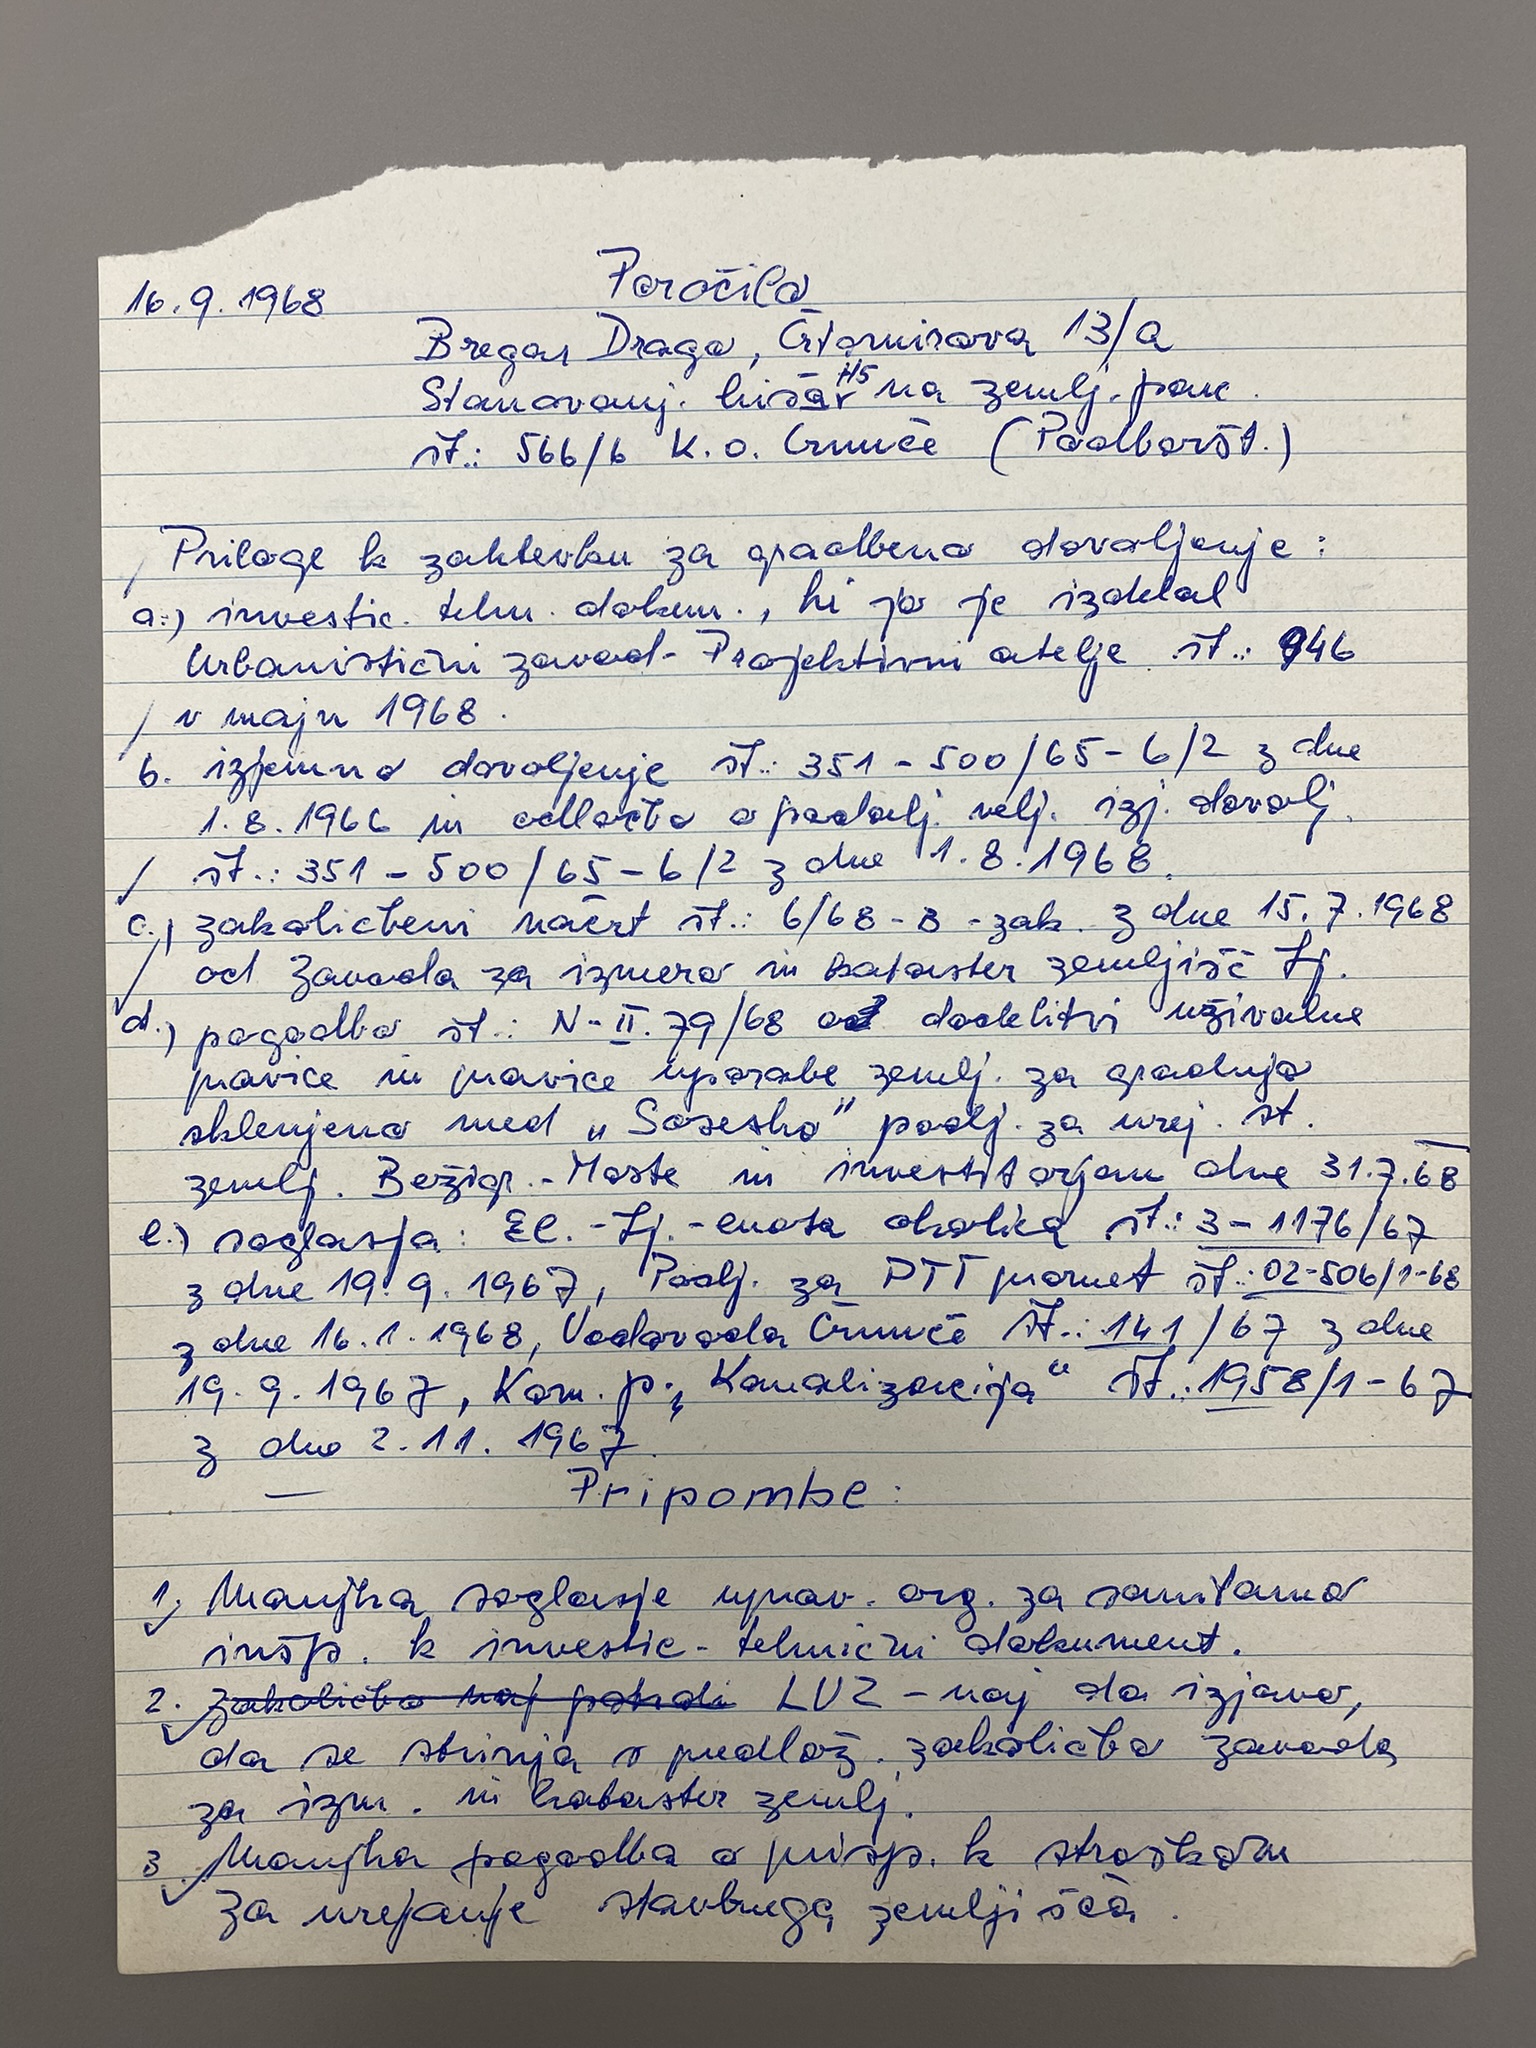 16.9.1968 Poročilo
Bregar Drago, Črtomirova 13/a
Stanovanj. hiša H5 na zemlj. parc.
št.: 566/6 K.O. Črnuče (Podboršt.)
Priloge k zahtevku za gradbeno dovoljenje:
a.) investic. tehn. dokum., ki jo je izdelal
Urbanistični zavod- Projektivni atelje št.: 946
v maju 1968.
b. izjemno dovoljenje št.: 351-500/65-6/2 z dne
1.8.1966 in odločbo o podalj. velj. izj. dovolj.
št.: 351-500/65-6/2 z dne 1.8.1968.
c.) zakoličbeni načrt št.: 6/68-B-zak. z dne 15.7.1968
od Zavoda za izmero in kataster zemljišč Lj.
d.) pogodbo št.: N-II.79/68 o dodelitvi uživalne
pravice in pravice uporabe zemlj. za gradnjo
sklenjeno med „Sosesko" podj. za urej. st.
zemlj. Bežigr.-Moste in investitorjem dne 31.7.68
e.) soglasja: El.-Lj.-enota okolica št.: 3-1176/67
z dne 19.9.1967, Podj. za PTT promet št.: 02-506/1-68
z dne 16.1.1968, Vodovoda Črnuče št.: 141/67 z dne
19.9.1967, Kom. p. „Kanalizacija" št.: 1958/1-67
z dne 2.11.1967.
Pripombe:
1. Manjka soglasje uprav. org. za sanitarno
insp. k investic-tehnični dokument.
2. Zakoličbo naj potrdi LUZ - naj da izjavo,
da se strinja s predlož. zakoličbo zavoda
za izm. in kataster zemlj.
3. Manjka pogodba o prisp. k stroškom
za urejanje stavbnega zemljišča.